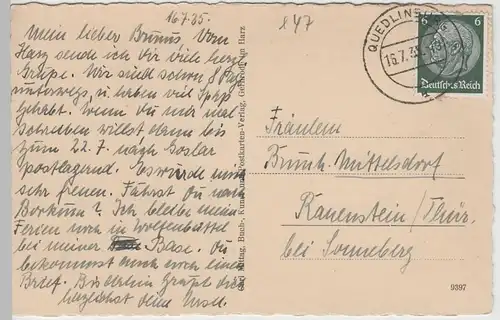 16.7.35.
Mein lieber Brunus. Vom
Harz sende ich dir viele herzl.
Grüße. Wir sind schon 8 Tag
unterwegs, u. haben viel Spaß
gehabt. Wenn du mir mal
schreiben willst dann bis
zum 22.7. nach Goslar
postlagernd. Es würde mich
sehr freuen. Fährst Du nach
Borkum? Ich bleibe meine
Ferien noch in Wolfenbüttel
bei meiner Base. Du
bekommst auch noch einen
Brief. Bis dahin grüßt dich
herzlichst deine
Buch-, Kunst- und Postkarten-Verlag, Gernrode im Harz
847
QUEDLINBURG
16.7.35
6 6
Deutsches Reich
Fräulein
Mittelsdorf
Rauenstein/Thür.
bei Sonneberg
9397